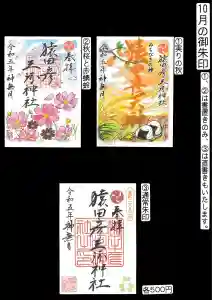 10月の御朱印
①、②は書置きのみ、③は直書きもいたします。
①実りの秋
奉拝
猿田彦三河神社
令和五年神無月
②秋桜と赤蜻蛉
奉拝
猿田彦三河神社
令和五年神無月
③通常朱印
奉拝
猿田彦三河神社
令和五年神無月
各500円